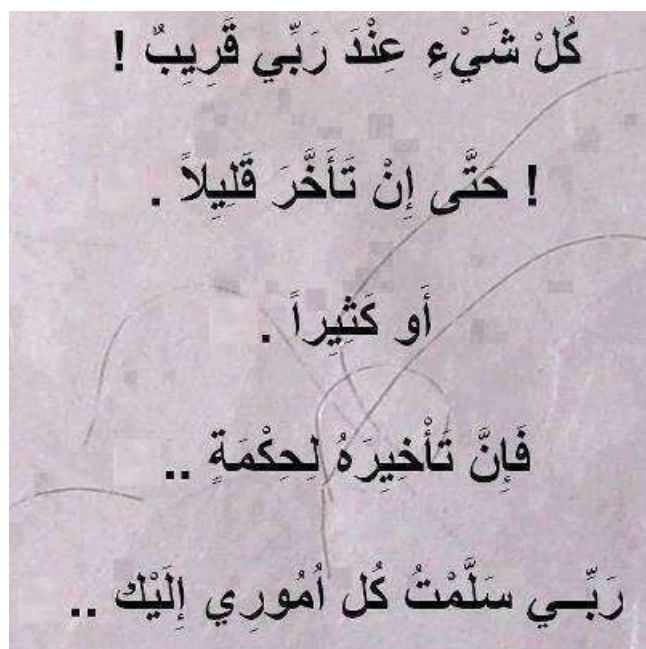 كُلْ شَيْءٍ عِنْدَ رَبِّي قَرِيبٌ !
! حَتَّى إِنْ تَأَخَّرَ قَلِيِلاً .
أَو كَثِيِراً .
فَإِنَّ تَأْخِيِرَهُ لِحِكْمَةٍ ..
رَبِّـــي سَلَّمْتُ كُل اُمُورِي إِلَيْك ..